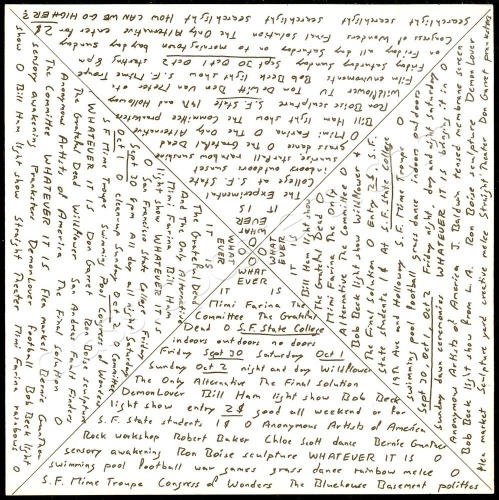 WHAT
EVER
IT IS
The Experimental
College at S.F. State
indoors outdoors sunset
sunrise starfall rainbow sunshine
grass dance O The Grateful Dead
O Mimi Farina O The Only Alternative
Bill Ham light show The Committee pranksters
Ron Boise sculpture S.F. State 19th and Holloway
Wildflower Tom DeWitt Don Van der etc
environmental Film Bob Beck light show S.F. Mime Troupe
Friday Saturday Sunday Sept 30 Oct 1 Oct 2 starting 8pm
on Friday all day Saturday on to morningtown bay day Sunday
Congress of Wonders Final Solution The Only Alternative enter for 2$
searchlight searchlight searchlight HOW CAN WE GO HIGHER?
WHAT
EVER
IT IS
Bill Ham light show
The Grateful Dead
Mimi Farina The Only
Alternative The Committee O
Bob Beck light show Wildflower &
The Final Solution O Entry 2$ S.F.
State students 1$ At S.F. State College
19th Ave and Holloway S.F. Mime Troupe O
swimming pool football grass dance indoors and outdoors
Sept 30, Oct 1, Oct 2 Friday night day and night Saturday
Sunday dawn ceremonies WHATEVER IT IS bringing it in O
Anonymous Artists of America J. Baldwin tensed membrane screen
Bob Beck light show from L.A. Ron Boise sculpture DemonLover
flea market Sculpture yard creative melee Straight Theater Don Garret pranksters
WHAT
EVER
IT IS
Mimi Farina The
Committee The Grateful
Dead O S.F. State College
indoors outdoors no doors
Friday Sept 30 Saturday Oct 1
Sunday Oct 2 night and day Wildflower
The Only Alternative The Final Solution
DemonLover Bill Ham light show Bob Beck
light show entry 2$ good all weekend or for
S.F. State students 1$ O Anonymous Artists of America
Rock workshop Robert Baker Chloe Scott dance Bernie Gunther
sensory awakening Ron Boise sculpture WHATEVER IT IS O
swimming pool football war games grass dance rainbow melee O
S.F. Mime Troupe Congress of Wonders The Bluehouse Basement politics
WHAT
EVER
IT IS
The Grateful Dead
And The Only Alternative
Mimi Farina Bill Ham
light show WHATEVER IS
O San Francisco State College Friday
Sept 30 8pm All day all night Saturday
Oct 1 O cleanup Sunday Oct 2 O Committee
S.F Mime Troupe Swimming Pool Congress of Wonders
WHATEVER IT IS Don Garret Ron Boise sculpture
The Grateful Dead Wildflower San Andreas Fault Finders
Anonymous Artists of America The Final Solution O
The Committee WHATEVER IT IS Flea market Bernie Gunther
sensory awakening Pranksters Demonlover Football Bob Beck light
show O Bill Ham light show Straight Theater Mimi Farina rainbows O